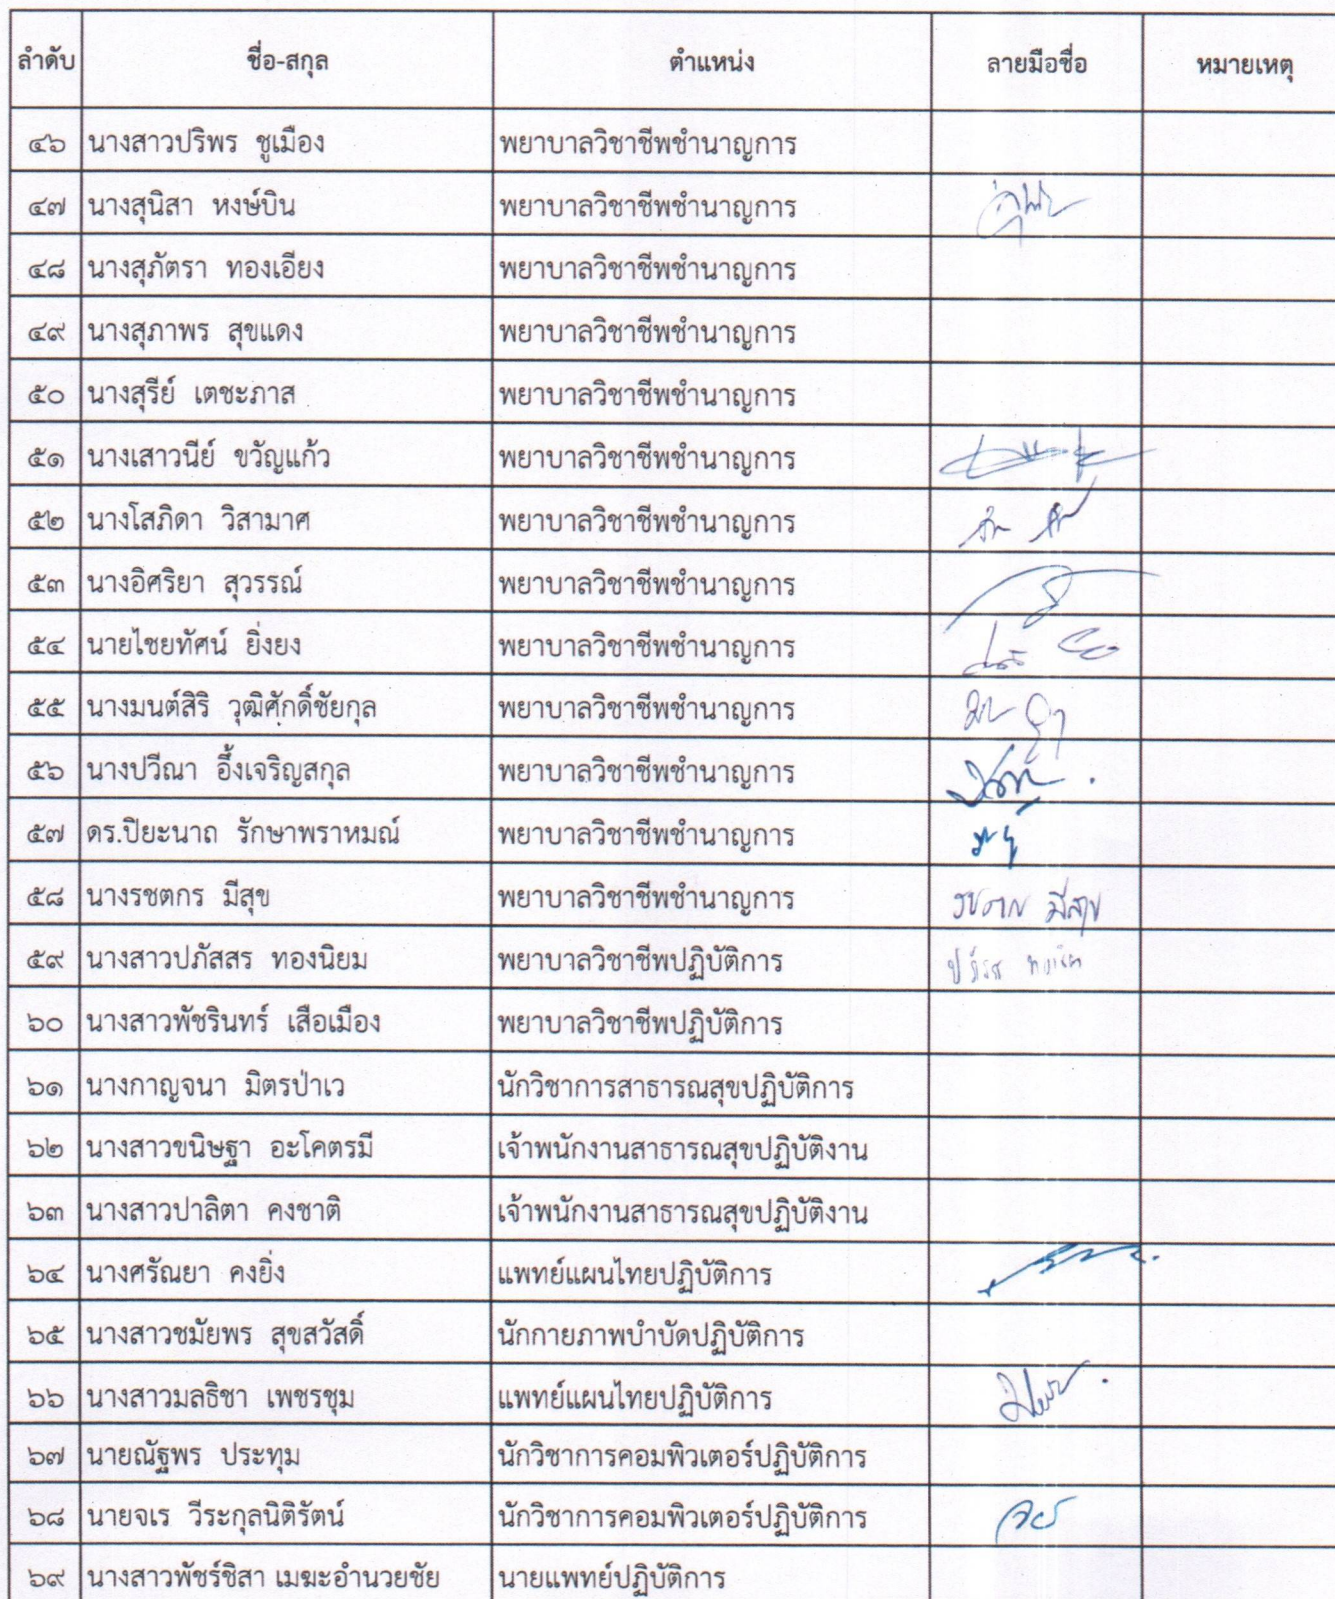 ลำดับ ชื่อ-สกุล ตำแหน่ง ลายมือชื่อ หมายเหตุ
๔๖ นางสาวปริพร ชูเมือง พยาบาลวิชาชีพชำนาญการ
๔๗ นางสุนิสา หงษ์บิน พยาบาลวิชาชีพชำนาญการ
๔๘ นางสุภัตรา ทองเอียง พยาบาลวิชาชีพชำนาญการ
๔๙ นางสุภาพร สุขแดง พยาบาลวิชาชีพชำนาญการ
๕๐ นางสุรีย์ เตชะภาส พยาบาลวิชาชีพชำนาญการ
๕๑ นางเสาวนีย์ ขวัญแก้ว พยาบาลวิชาชีพชำนาญการ
๕๒ นางโสภิดา วิสามาศ พยาบาลวิชาชีพชำนาญการ
๕๓ นางอิศริยา สุวรรณ์ พยาบาลวิชาชีพชำนาญการ
๕๔ นายไชยทัศน์ ยิ่งยง พยาบาลวิชาชีพชำนาญการ
๕๕ นางมนต์สิริ วุฒิศักดิ์ชัยกุล พยาบาลวิชาชีพชำนาญการ
๕๖ นางปวีณา อึ้งเจริญสกุล พยาบาลวิชาชีพชำนาญการ
๕๗ ดร.ปิยะนาถ รักษาพราหมณ์ พยาบาลวิชาชีพชำนาญการ
๕๘ นางรชตกร มีสุข พยาบาลวิชาชีพชำนาญการ มีสุข
๕๙ นางสาวปภัสสร ทองนิยม พยาบาลวิชาชีพปฏิบัติการ
๖๐ นางสาวพัชรินทร์ เสือเมือง พยาบาลวิชาชีพปฏิบัติการ
๖๑ นางกาญจนา มิตรป่าเว นักวิชาการสาธารณสุขปฏิบัติการ
๖๒ นางสาวขนิษฐา อะโคตรมี เจ้าพนักงานสาธารณสุขปฏิบัติงาน
๖๓ นางสาวปาลิตา คงชาติ เจ้าพนักงานสาธารณสุขปฏิบัติงาน
๖๔ นางศรัณยา คงยิ่ง แพทย์แผนไทยปฏิบัติการ
๖๕ นางสาวชมัยพร สุขสวัสดิ์ นักกายภาพบำบัดปฏิบัติการ
๖๖ นางสาวมลธิชา เพชรชุม แพทย์แผนไทยปฏิบัติการ
๖๗ นายณัฐพร ประทุม นักวิชาการคอมพิวเตอร์ปฏิบัติการ
๖๘ นายจเร วีระกุลนิติรัตน์ นักวิชาการคอมพิวเตอร์ปฏิบัติการ
๖๙ นางสาวพัชร์ชิสา เมฆะอำนวยชัย นายแพทย์ปฏิบัติการ